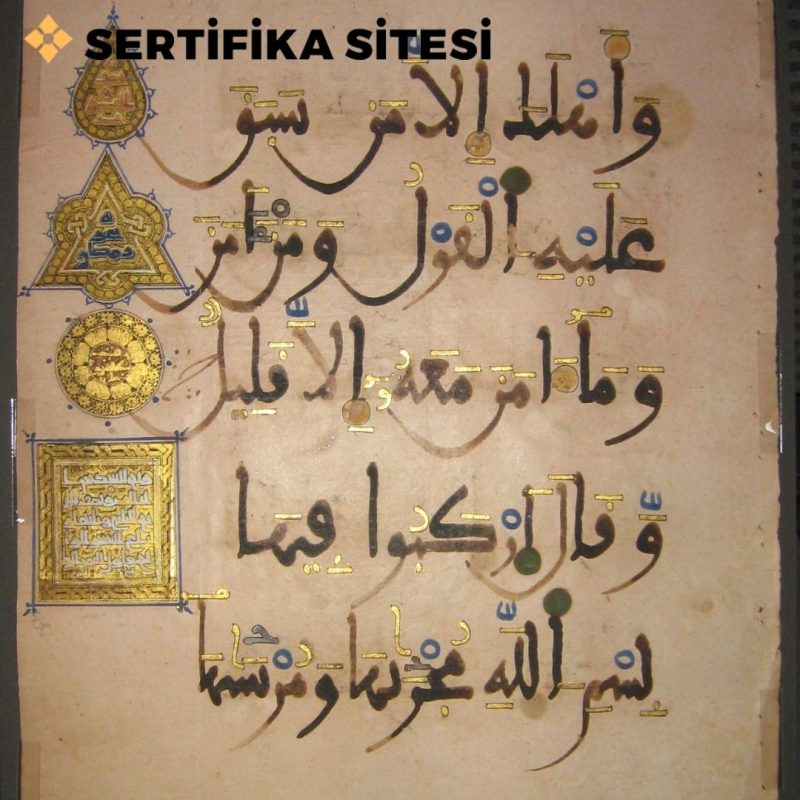 SERTİFİKA SİTESİ
وَأَهْلَكَ إِلَّا مَن سَبَقَ
عَلَيْهِ الْقَوْلُ وَمَنْ آمَنَ
وَمَا آمَنَ مَعَهُ إِلَّا قَلِيلٌ
وَقَالَ ارْكَبُوا فِيهَا
بِسْمِ اللَّهِ مُجْرَىٰهَا وَمُرْسَىٰهَا